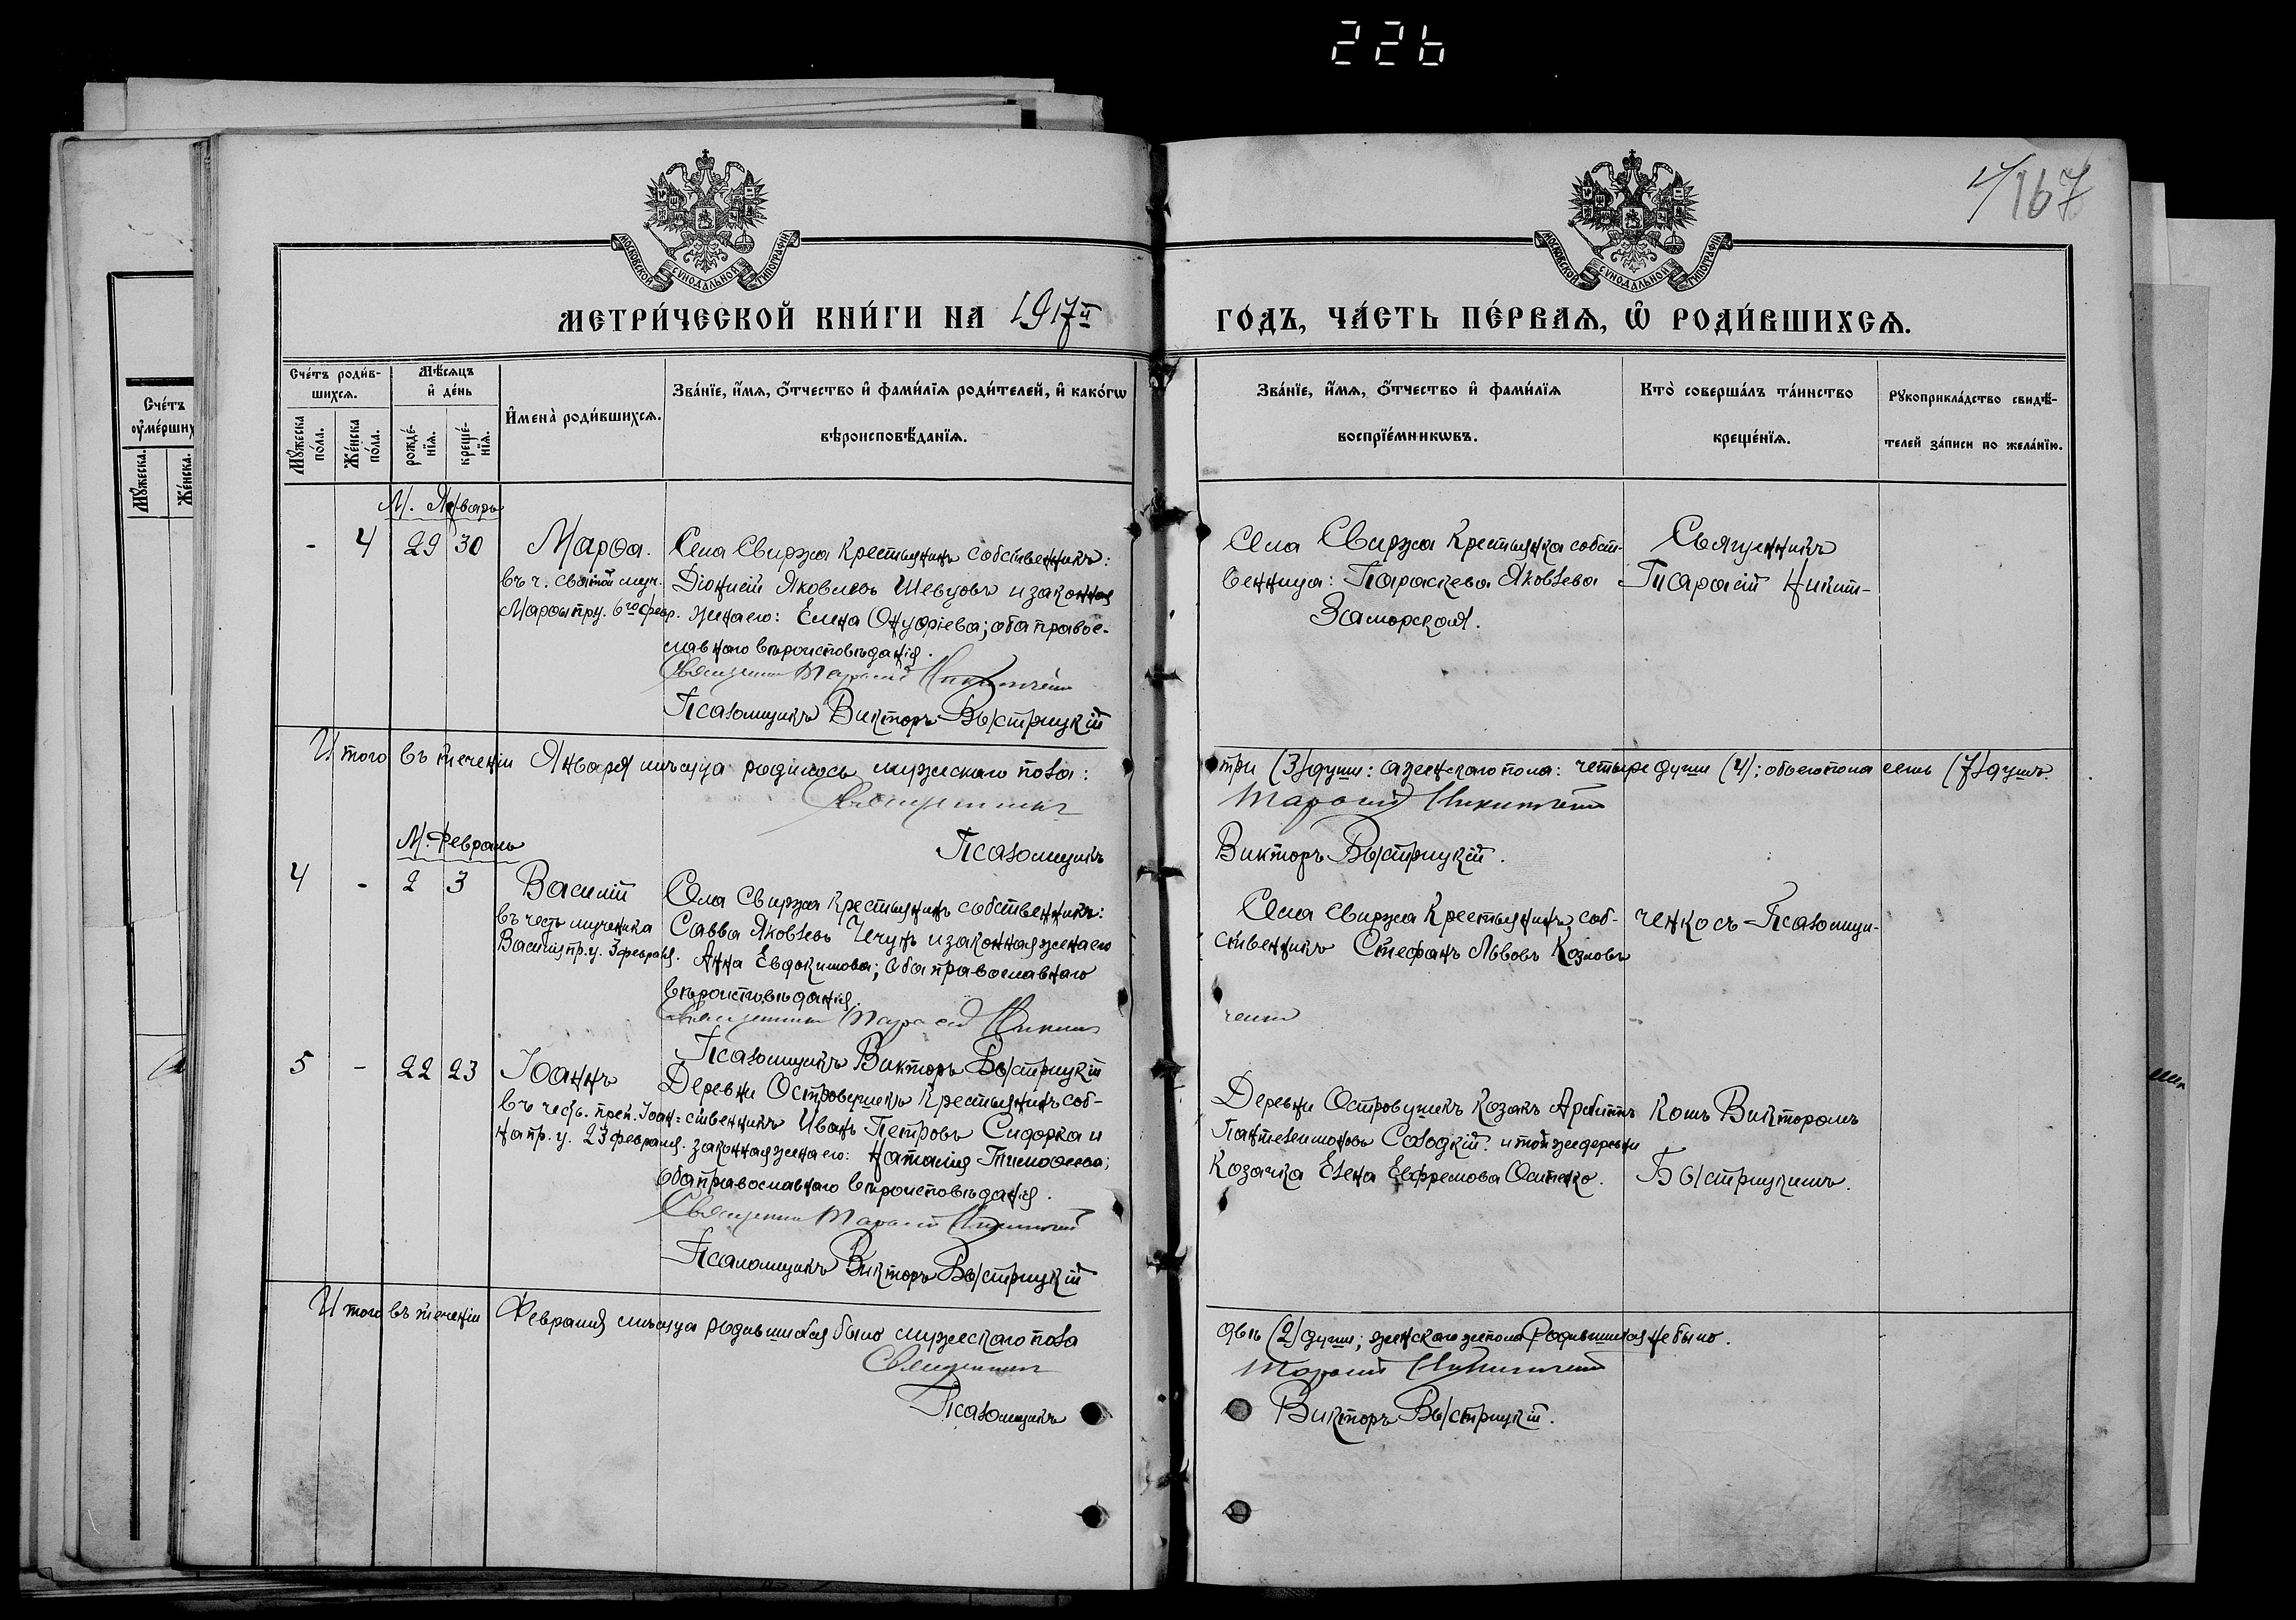 226
4/167
МОСКОВСКОЙ СѴНОДАЛЬНОЙ ТИПОГРАФІИ
МОСКОВСКОЙ СѴНОДАЛЬНОЙ ТИПОГРАФІИ
МЕТРИ́ЧЕСКОЙ КНИ́ГИ НА 1917й
ГО́ДЪ, ЧА́СТЬ ПЕ́РВАѦ, Ѡ҆ РОДИ́ВШИХСѦ.
Сче́тъ
оу҆ме́рших
Мꙋ́жеска.
Же́нска.
Сче́тъ роди́в-
шихсѧ.
Мꙋ́жеска по́ла.
Же́нска по́ла.
Мѣ́сѧцъ и҆ де́нь
рожде́-нїѧ.
креще́-нїѧ.
И҆мена̀ роди́вшихсѧ.
Зва́нїе, и҆́мѧ, ѻ҆́тчество и҆ фами́лїѧ роди́телей, и҆ како́гѡ
вѣроисповѣ́данїѧ.
Зва́нїе, и҆́мѧ, ѻ҆́тчество и҆ фами́лїѧ
воспрїе́мникѡвъ.
Кто̀ соверша́лъ та́инство
креще́нїѧ.
Рꙋкоприкла́дство свидѣ́-
телей за́писи по жела́нїю.
М. Январь
- 4 29 30
Марѳа.
въ ч. святой муч.
Марѳы пр. у. 6го февр.
Села Свиржа крестьянинъ собственникъ:
Діонисій Яковлевъ Шевцовъ и законная
жена его: Елена Онуфріева; оба право-
славнаго вѣроисповѣданія.
Священникъ Тарасій Никитченко
Псаломщикъ Викторъ Быстрицкій
Села Свиржа крестьянка собст-
венница: Параскева Яковлева
Заморская.
Священникъ
Тарасій Никит-
Итого въ теченіи Января мѣсяца родилось мужескаго пола:
три (3) души: а женскаго пола: четыре души (4); обоего пола семь (7) душъ.
Священникъ
Тарасій Никитченко
Псаломщикъ
Викторъ Быстрицкій.
М. Февраль
4 - 2 3
Василій
въ честь мученика
Василія пр. у. 3 февраля.
Села Свиржа крестьянинъ собственникъ:
Савва Яковлевъ Чечунъ и законная жена его
Анна Евдокимова; оба православнаго
вѣроисповѣданія.
Священникъ Тарасій Никит
Псаломщикъ Викторъ Быстрицкій
Села Свиржа крестьянинъ соб-
ственникъ Стефанъ Львовъ Козловъ
ченко съ Псаломщи-
ченко
5 - 22 23
Іоаннъ
въ честь. преп. Іоан-
на пр. у. 23 февраля.
Деревни Островущикъ крестьянинъ соб-
ственникъ Иванъ Петровъ Сидорка и
законная жена его: Наталія Тимоѳеева;
оба православнаго вѣроисповѣданія.
Священникъ Тарасій Никитченко
Псаломщикъ Викторъ Быстрицкій
Деревни Островущикъ козакъ
Пантелеимоновъ Солодкій. и той же деревни
Козачка Елена Евфремова Осипенко.
комъ Викторомъ
Быстрицкимъ.
Итого въ теченіи Февраля мѣсяца родившихся было мужескаго пола
двѣ (2) души; женскаго же пола родившихся не было.
Священникъ
Тарасій Никитченко
Псаломщикъ
Викторъ Быстрицкій.